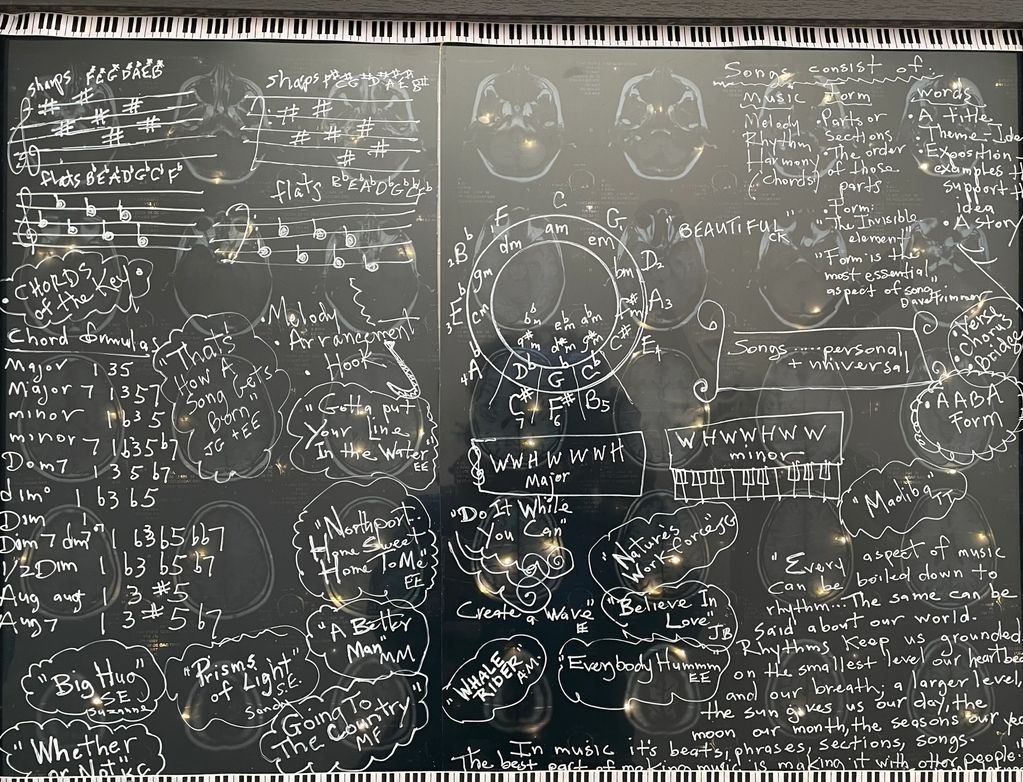 sharps F# C# G# D# A# E# B#
flats Bb Eb Ab Db Gb Cb Fb
sharps
flats Bb Eb Ab Db Gb Cb Fb
• CHORDS
of the Key
Chord formulas
Major 1 3 5
Major 7 1 3 5 7
minor 1 b3 5
minor 7 1 b3 5 b7
Dom 7 1 3 5 b7
dim° 1 b3 b5
Dim 7 dm°7 1 b3 b5 bb7
1/2 Dim 1 b3 b5 b7
Aug aug 1 3 #5
Aug 7 1 3 #5 b7
"That's
How A
Song Gets
Born"
JG + EE
• Melody
• Arrangement
• Hook
"Gotta put
Your Line
In the Water"
EE
"Northport..
Home Sweet
Home To Me"
EE
"A Better
Man" MM
"Big Hug"
S.E.
Suzanne
"Prisms
of Light"
S.E.
Sandy
"Going To
The Country"
MF
"Whether
or Not"
C
G
D2
A3
E4
B5
F#6
C#7
F
2Bb
3Eb
4Ab
Db
Gb
Cb
am
em
bm
dm
gm
cm
WWHWWWH
Major
WHWWHWW
minor
"Do It While
You Can"
Create a Wave" E
"WHALE
RIDER"
A.M.
"Nature's
Work Forces"
"Believe In
Love"
JB
"Everybody Hummm"
EE
"BEAUTIFUL"
CK
Songs consist of:
Music
Melody
Rhythm
Harmony
(Chords)
Form
• Parts or
Sections
• The order
of those
parts
• Form:
The Invisible
element
"Form is the
most essential
aspect of song"
Dave Trimmer
words
• A title
• Theme - Idea
• Exposition
examples to
support the
idea
• A story
• Verse
• Chorus
• bridge
Songs.....personal
+ universal
• AABA
Form
"Madiba"
JJ
"Every aspect of music
can be boiled down to
rhythm... The same can be
said about our world.
Rhythms keep us grounded
on the smallest level our heartbeat
and our breath; a larger level,
the sun gives us our day, the
moon our month, the seasons our year
In music it's beats, phrases, sections, songs.
The best part of making music is making it with other people"